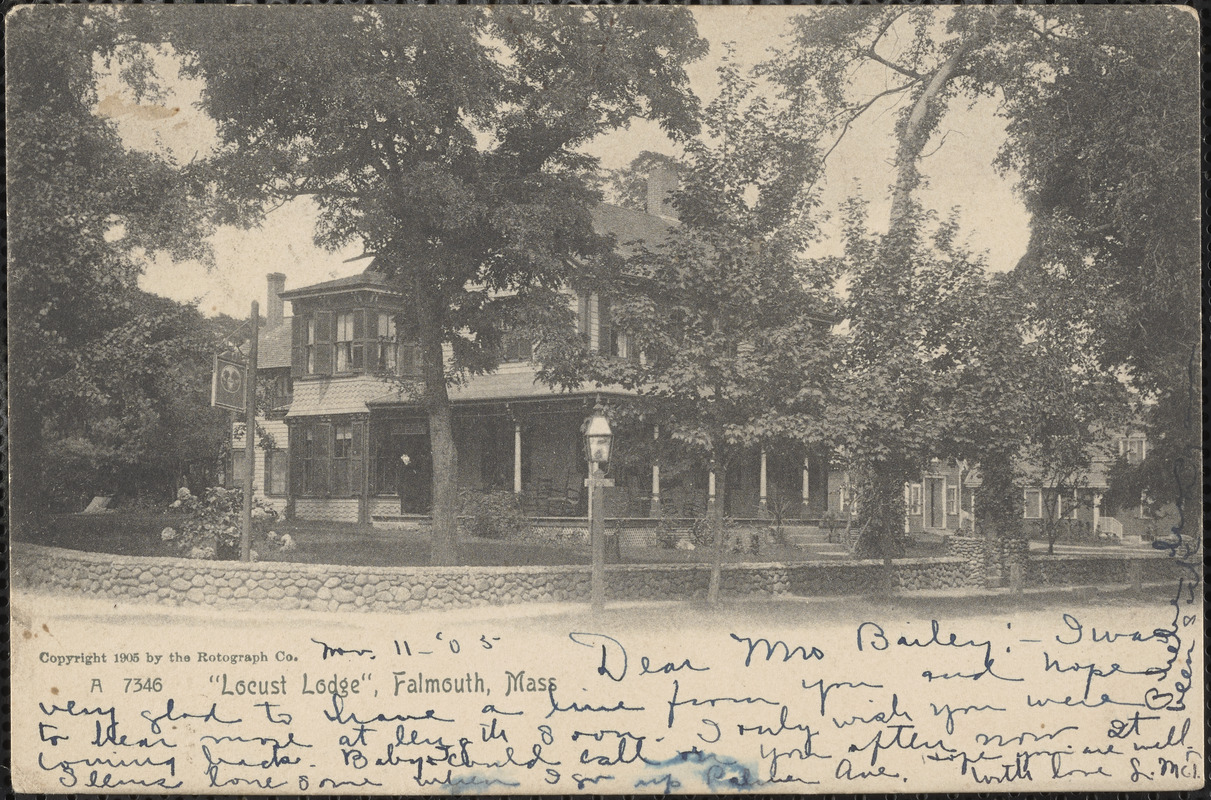 Copyright 1905 by the Rotograph Co.
A 7346 "Locust Lodge", Falmouth, Mass
Nov. 11 - '05
Dear Mrs Bailey! - I was
very glad to have a line from you and hope
to hear more at length soon. I only wish you were
coming back. Baby & I could call on you often now It
seems lonesome when I go up Palmer Ave. Hope you are well.
with love L. McL.